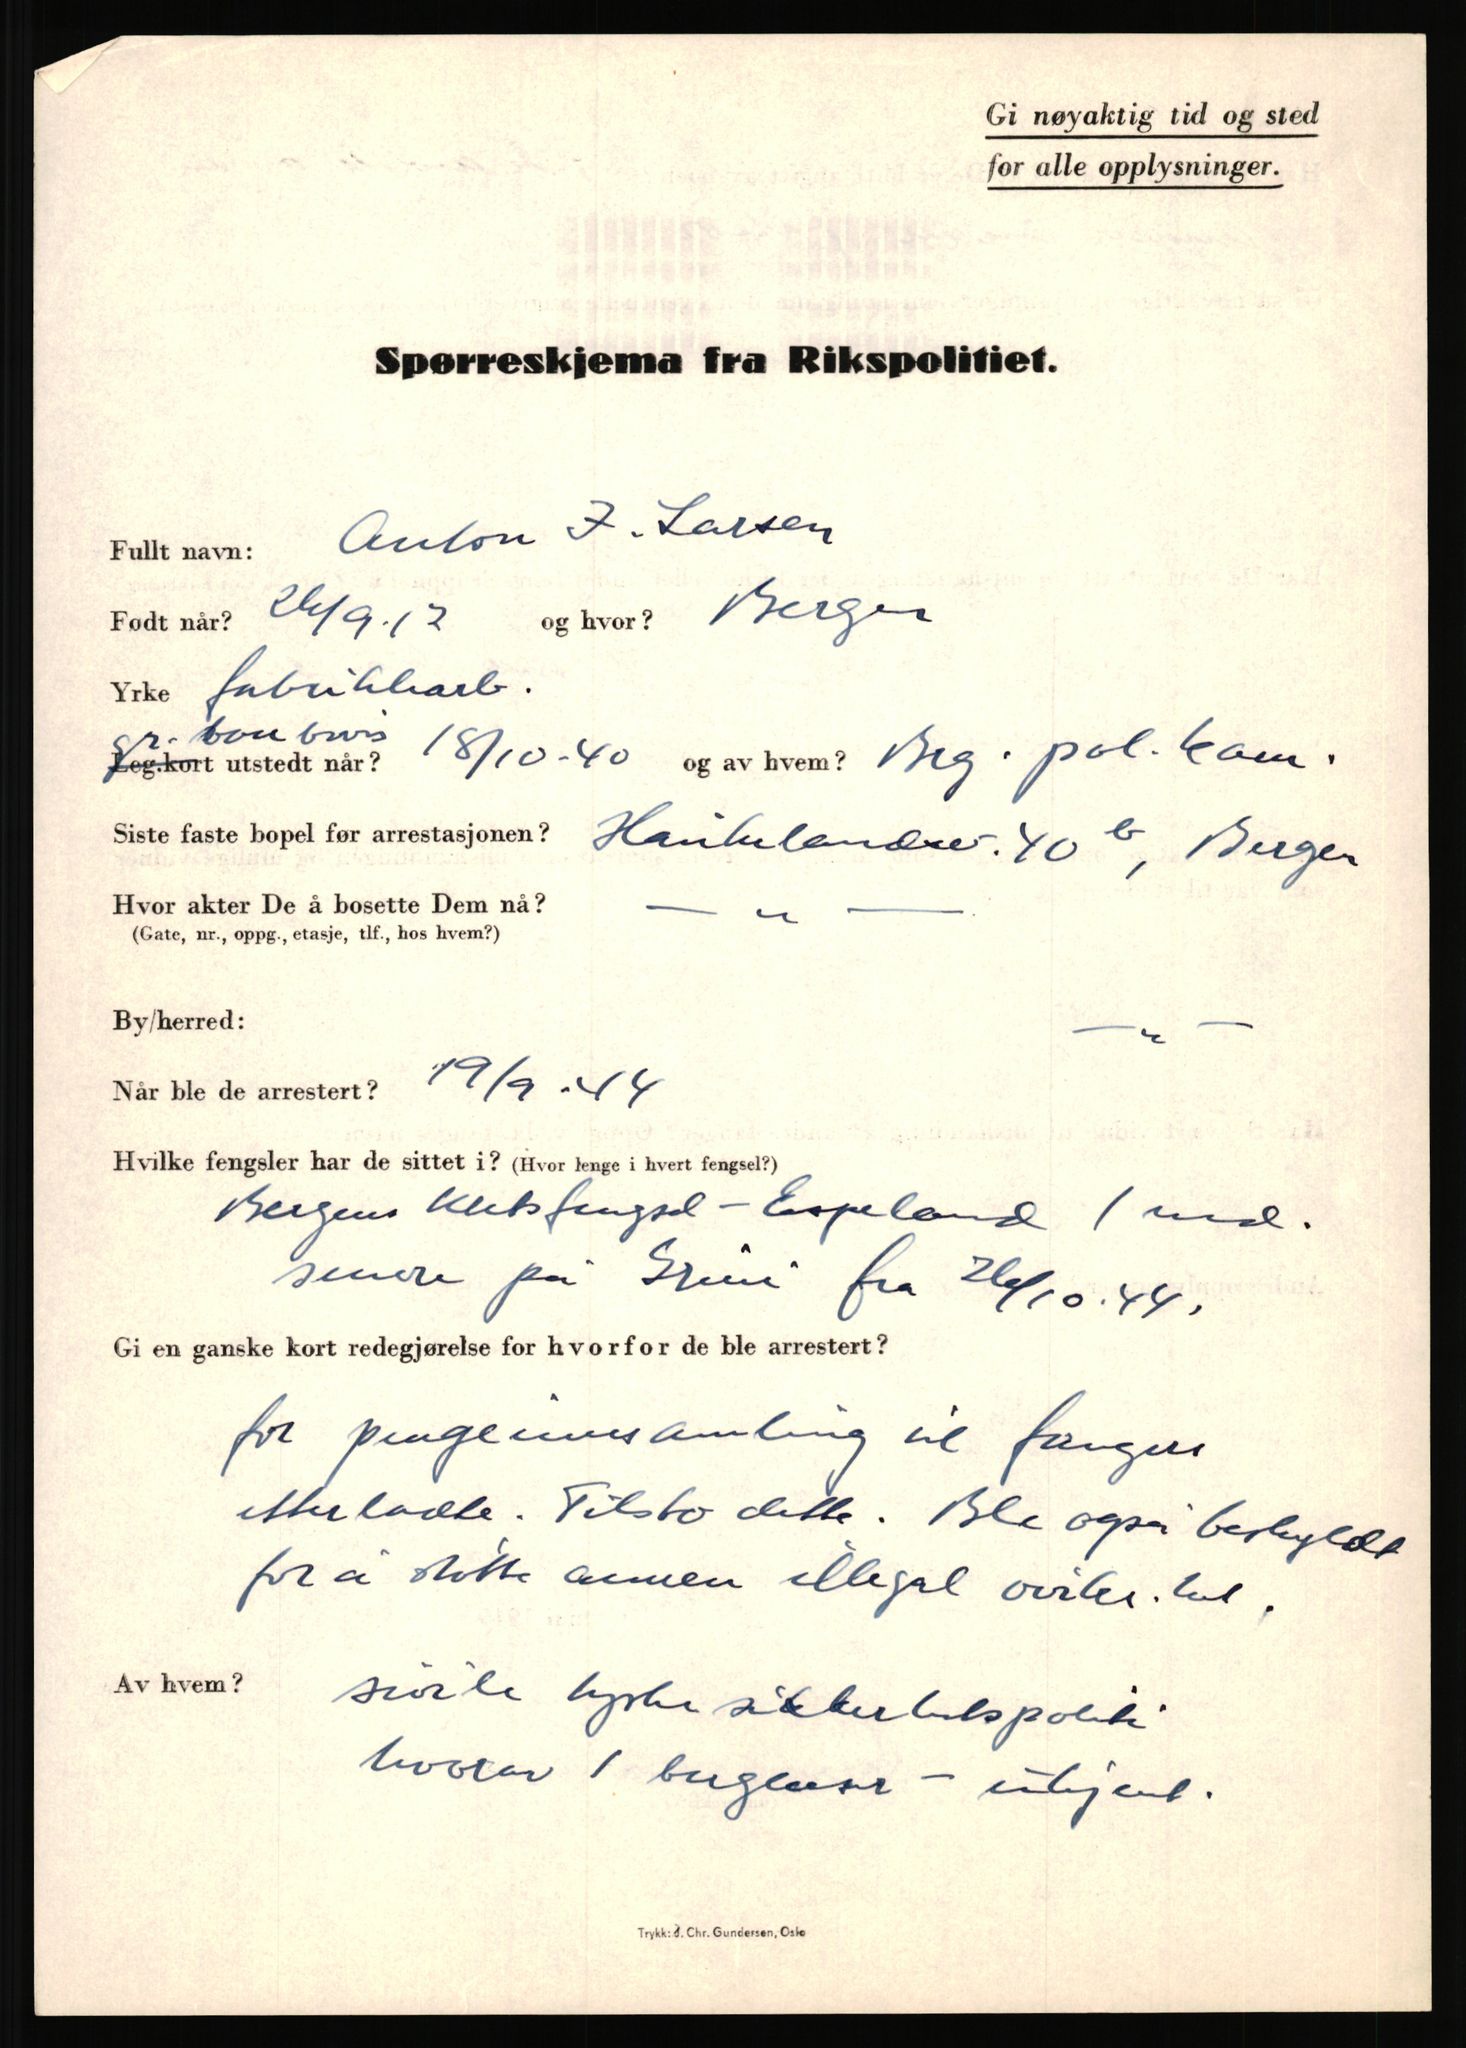 Gi nøyaktig tid og sted
for alle opplysninger.
Spørreskjema fra Rikspolitiet.
Fullt navn: Anton J. Larsen
Født når? 26/9.12 og hvor? Bergen
Yrke fabrikkarb.
gr. boer bevis
Leg.kort utstedt når? 18/10-40 og av hvem? Brg. pol. kam.
Siste faste bopel før arrestasjonen? Haukelandsv. 40 b, Bergen
Hvor akter De å bosette Dem nå? — " —
(Gate, nr., oppg., etasje, tlf., hos hvem?)
By/herred: — " —
Når ble de arrestert? 19/9.44
Hvilke fengsler har de sittet i? (Hvor lenge i hvert fengsel?)
Bergens kretsfengsel – Espeland 1 md.
senere på Grini fra 26/10.44.
Gi en ganske kort redegjørelse for hvorfor de ble arrestert?
for pengeinnsamling til fangers
etterladte. Tilsto dette. Ble også beskyldt
for å støtte annen illegal virks.het.
Av hvem? sivile tyske sikkerhetspoliti
hvorav 1 bergenser – ukjent.
Trykk: J. Chr. Gundersen, Oslo